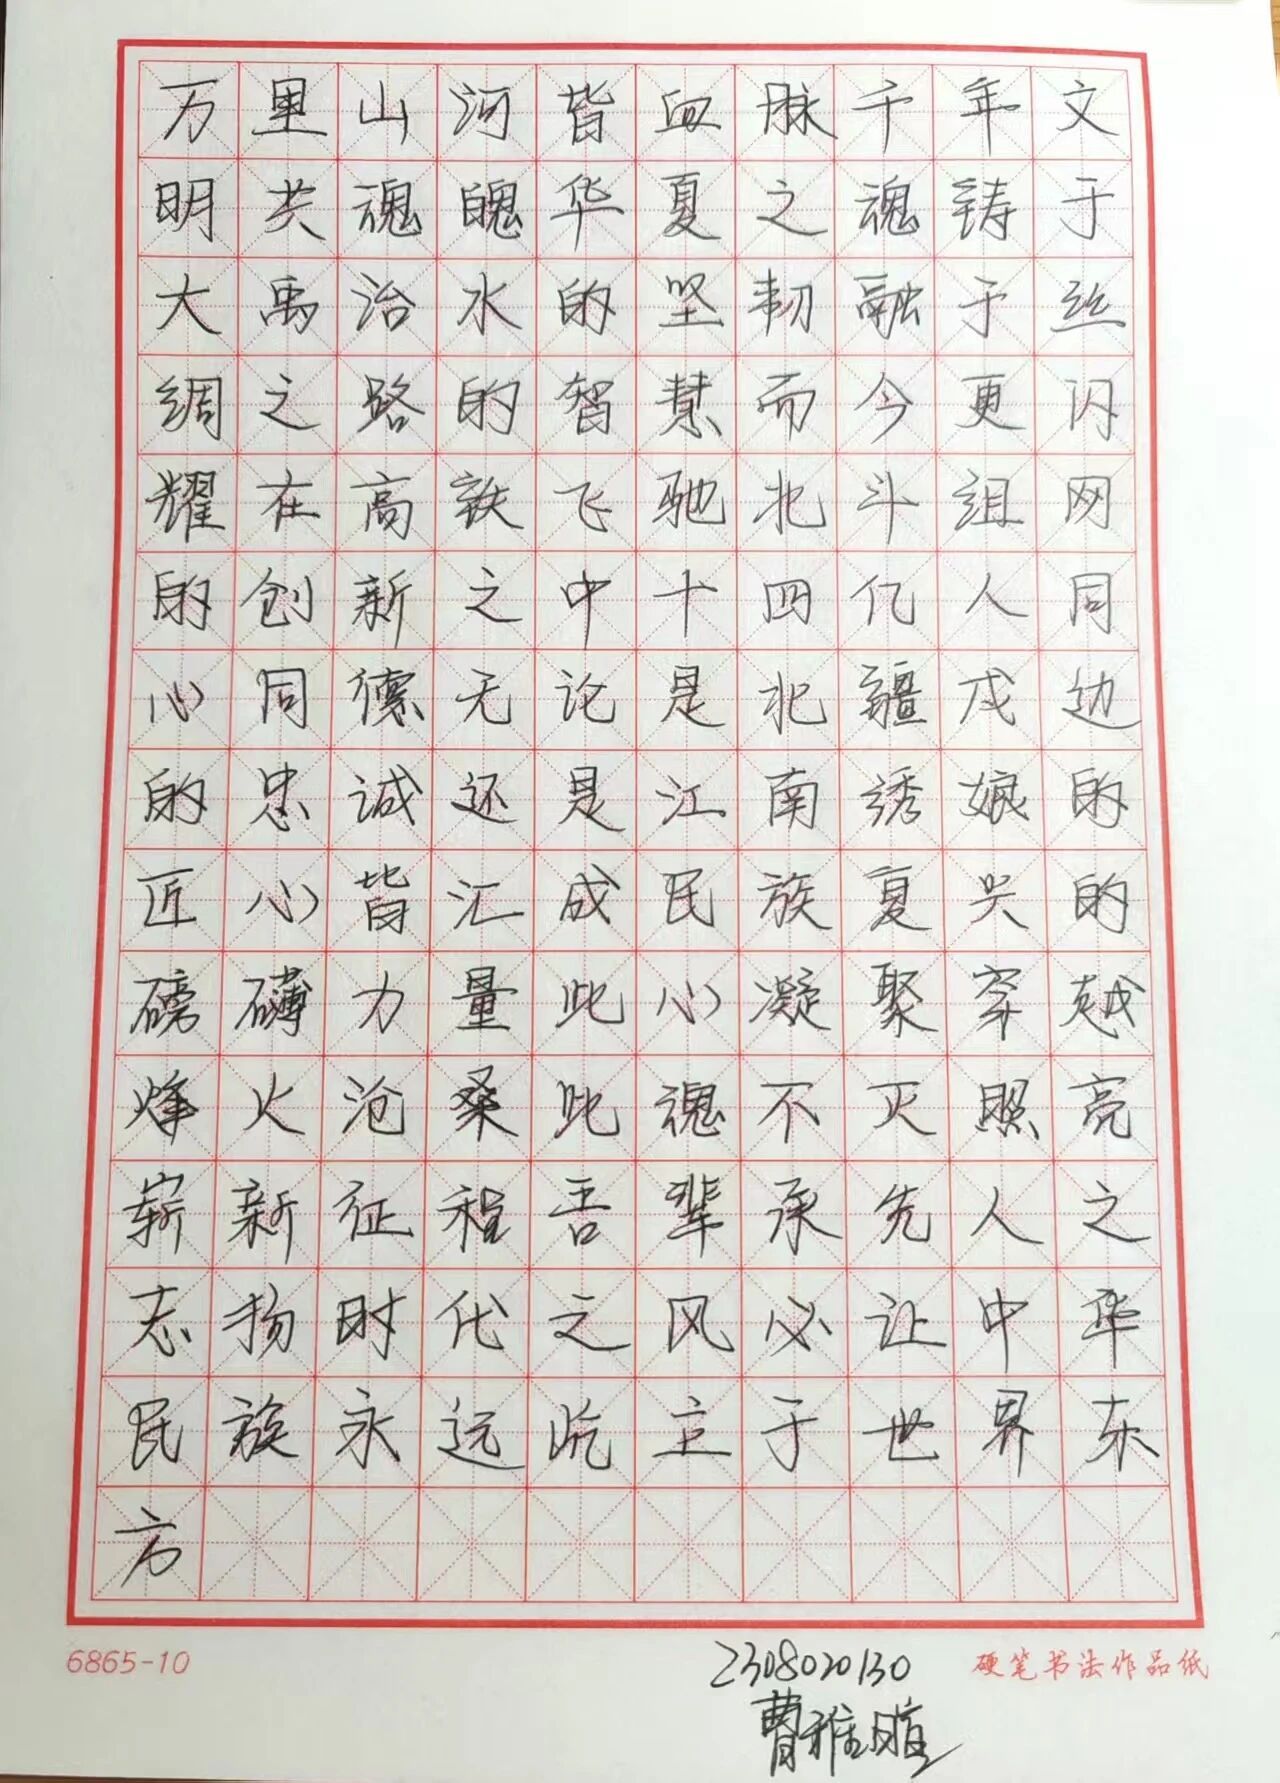 万里山河皆血脉千年文
明共魂魄华夏之魂铸于
大禹治水的坚韧融于丝
绸之路的智慧而今更闪
耀在高铁飞驰北斗组网
的创新之中十四亿人同
心同德无论是北疆戍边
的忠诚还是江南绣娘的
匠心皆汇成民族复兴的
磅礴力量此心凝聚穿越
烽火沧桑此魂不灭照亮
崭新征程吾辈承先人之
志扬时代之风必让中华
民族永远屹立于世界东
方
6865-10
2308020130
硬笔书法作品纸
曹雅暄